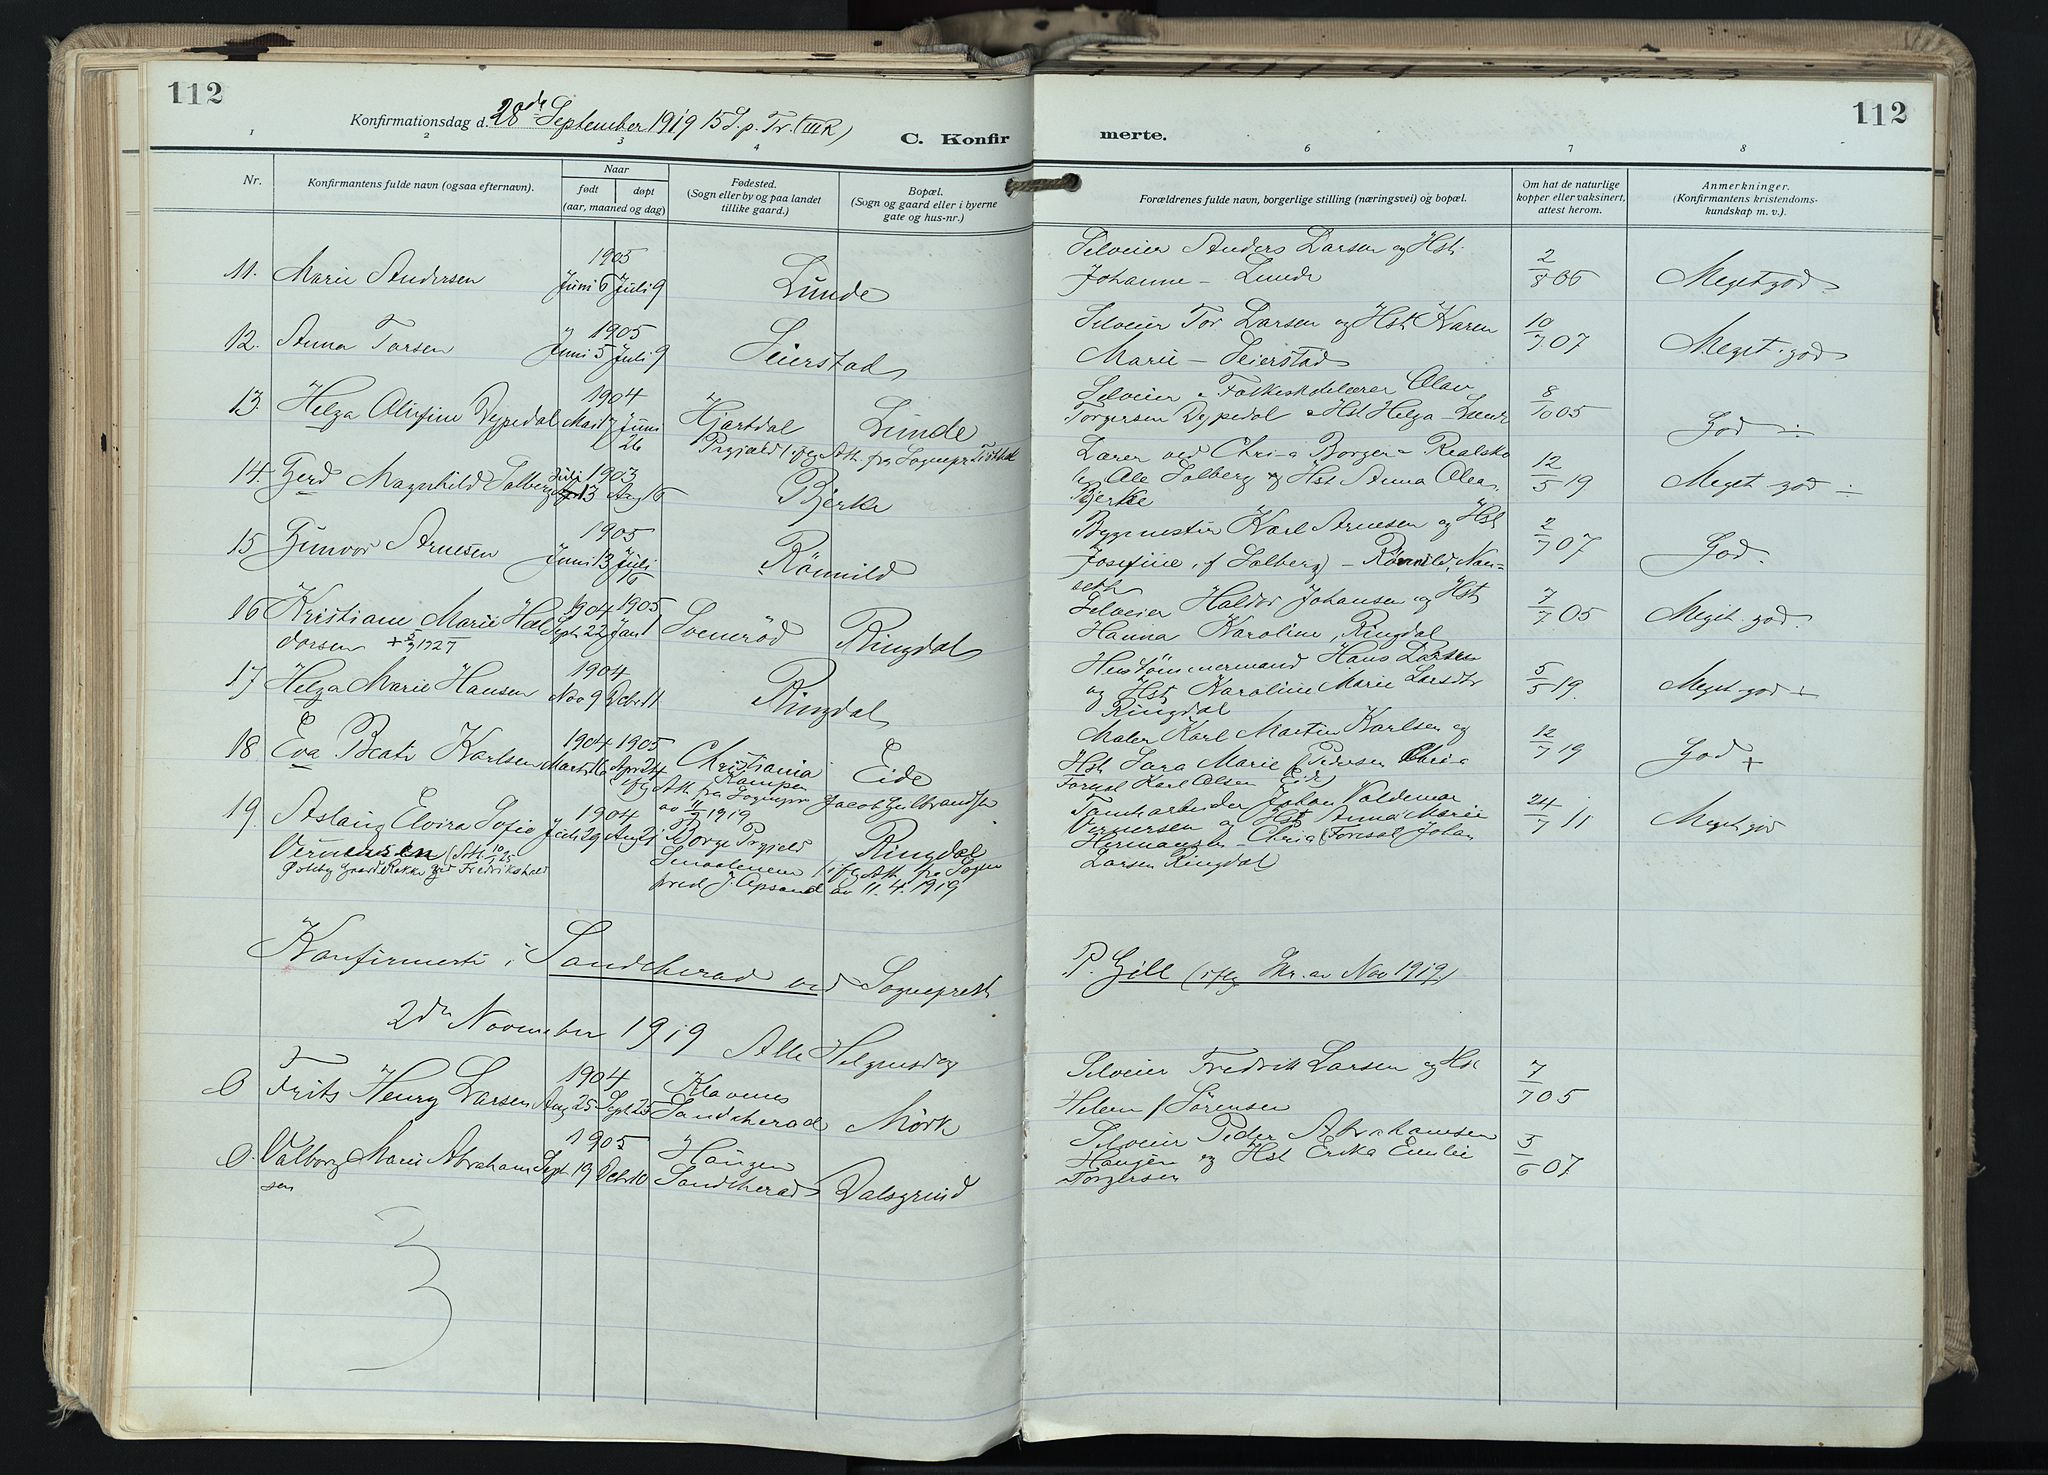 112
112
Konfirmationsdag d. 28de September 1919 15 S. p. Tr. (III R)
C. Konfir
merte.
1 2 3 4 6 7 8
Nr.
Konfirmantens fulde navn (ogsaa efternavn).
Naar
født
døpt
(aar, maaned og dag)
Fødested.
(Sogn eller by og paa landet
tillike gaard.)
Bopæl.
(Sogn og gaard eller i byerne
gate og hus-nr.)
Forældrenes fulde navn, borgerlige stilling (næringsvei) og bopæl.
Om hat de naturlige
kopper eller vaksinert,
attest herom.
Anmerkninger.
(Konfirmantens kristendoms-
kundskap m. v.).
11. Marie Andersen
1905
Juni 6 Juli 9
Lunde
Selveier Anders Larsen og Hst.
Johanne – Lunde
2/8 06
Meget god
12. Anna Torsen
1905
Juni 5 Juli 9
Seierstad
Selveier Tor Larsen og Hst Karen
Marie – Seierstad
10/7 07
Meget god
13. Helga Olufine Dypedal
1904
Mai Juni
26
Hjartdal
Lunde
Selveier Folkeskolelærer Olav
Torgersen Dypedal Hst Helga Lunde
8/10 05
God
14. Gerd Magnhild Solberg
1903
Juli 13 Aug 16
Bjerke
Lærer ved Chri-a Borger- Realskole
Ole Solberg og Hst Anna Olea
Bjerke
12/5 19
Meget god
15 Gunvor Arnesen
1905
Juni 13 Juli
16
Rømnild
Byggmester Karl Arnesen og Hst
Josefine, f Solberg) –
2/7 07
God.
16 Kristiane Marie Hal
dorsen
1904 1905
Sept. 22 Jan 1
Svenerød
Ringdal
Selveier Haldor Johansen og Hst
Hanna Karoline, Ringdal
7/7 05
Meget god.
17 Helga Marie Hansen
1904
Nov 9 Dcbr 11
Ringdal
Hustømmermand Hans Larsen
og Hst Karoline Marie Larsdtr
Ringdal
5/5 19.
Meget god +
18. Eva Beate Karlsen
1904 1905
Marts 16 Apr 24
Christiania
Kampen
ifg Att. fra Sognepr
av 11/7 1919
Eide
Maler Karl Martin Karlsen og
Hst Sara Marie f Pedersen Chri-a
Forsat Karl Olsen Eide)
12/7 19
God +
19. Aslaug Elvira Sofie
Vernersen
1904
Juli 29 Aug 21
Borge Prgjeld
Smaalenene
Ringdal
ifg Att. fra Sogne
av 11. 4. 1919
Johan Valdemar
Vernersen og Hst Anna Marie
Chria (Foresat Johan
Larsen Ringdal
24/7 11
Meget god
Konfirmerte i Sandeherad ved Sogneprest
P. Gill (ifg Skr. av Nov 1919)
2de November 1919 Alle Helgensdag
0 Frits Henry Larsen
1904
Aug 25 Sept 25
Klavenes
Sandeherad
Mørk
Selveier Fredrik Larsen og Hst
Helene f Sørensen
7/7 05
0. Valborg Marie Abraham
sen
1905
Sept. 19 Dcbr 10
Haugen
Sandeherad
Dalsgrind
Selveier Peder Abrahamsen
Haugen og Hst Erika Emilie
Torgersen
5/6 07